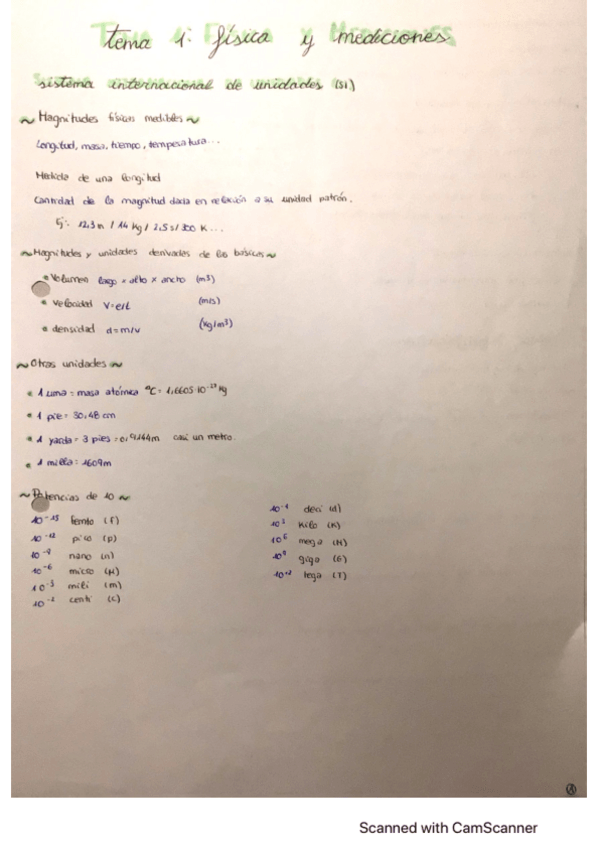 tema 1: física y mediciones
sistema internacional de unidades (SI)
~ Magnitudes físicas medibles ~
Longitud, masa, tiempo, temperatura...
Medida de una longitud
Cantidad de la magnitud dada en relación a su unidad patrón.
Ej: 12,3m / 14 Kg / 2,5 s / 300 K ...
~ Magnitudes y unidades derivadas de las básicas ~
• Volumen largo × alto × ancho (m³)
• velocidad v=e/t (m/s)
• densidad d=m/v (kg/m³)
~ Otras unidades ~
• 1 uma = masa atómica C = 1,6605·10⁻²⁷ kg
• 1 pie = 30,48 cm
• 1 yarda = 3 pies = 0,9144m casi un metro.
• 1 milla = 1609m
~ Potencias de 10 ~
10⁻¹⁵ femto (f)
10⁻¹² pico (p)
10⁻⁹ nano (n)
10⁻⁶ micro (μ)
10⁻³ mili (m)
10⁻² centi (c)
10⁻¹ deci (d)
10³ Kilo (K)
10⁶ mega (M)
10⁹ giga (G)
tega (T)
Scanned with CamScanner